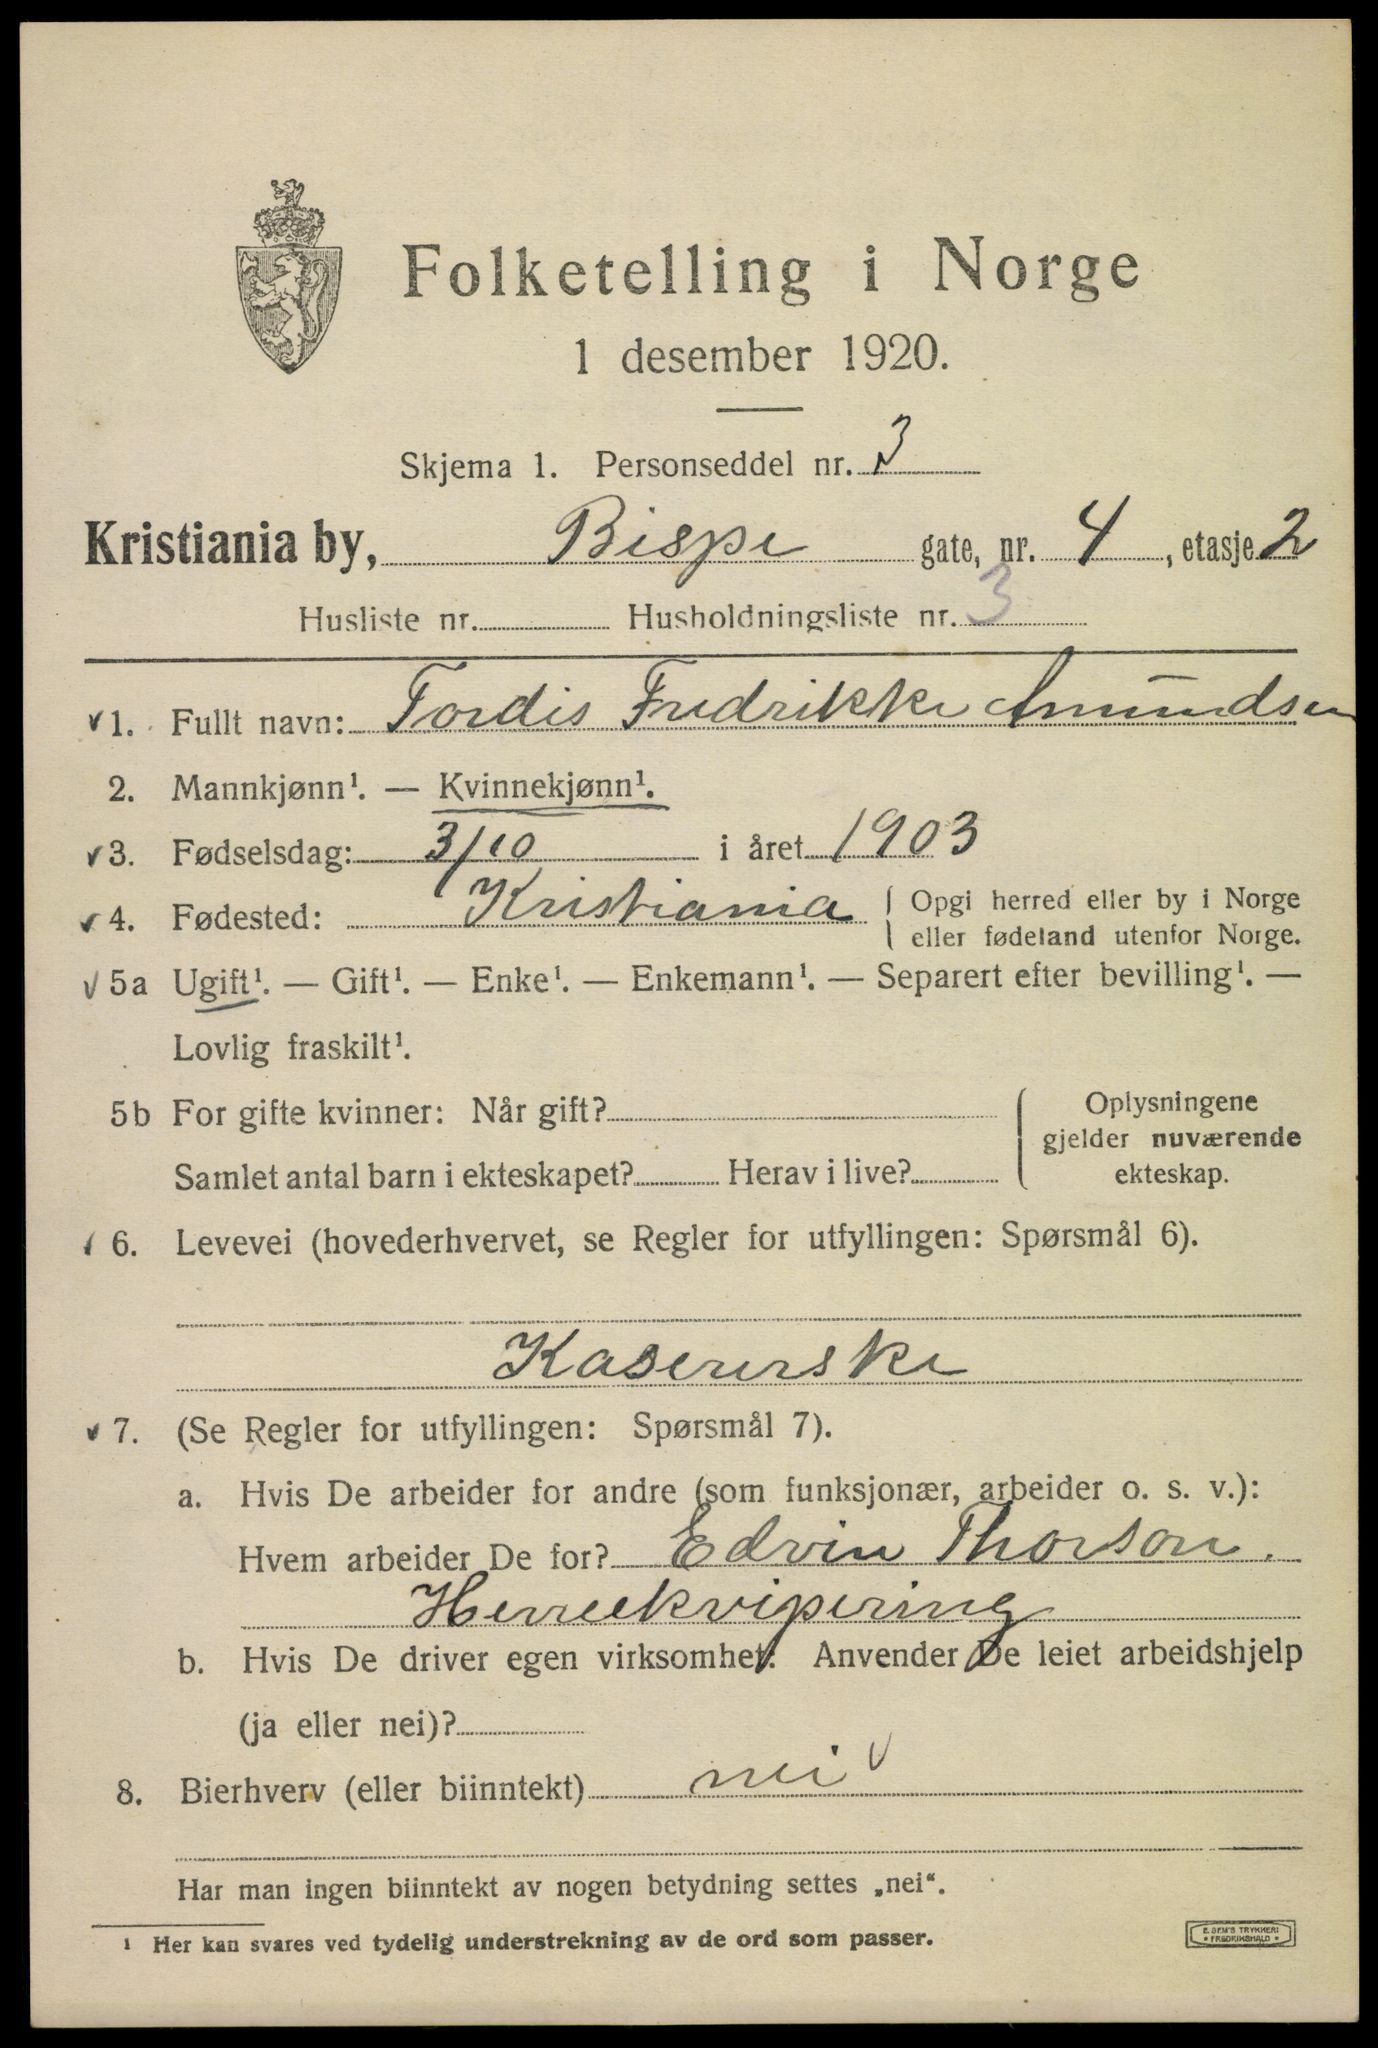 Folketelling i Norge
1 desember 1920.
Skjema 1. Personseddel nr. 3
Kristiania by, Bispe gate, nr. 4, etasje 2
Husliste nr. Husholdningsliste nr. 3
1. Fullt navn: Tordis Fredrikke Amundsen
2. Mannkjønn¹. — Kvinnekjønn¹.
3. Fødselsdag: 3/10 i året 1903
4. Fødested: Kristiania { Opgi herred eller by i Norge
eller fødeland utenfor Norge.
5a Ugift¹. — Gift¹. — Enke¹. — Enkemann¹. — Separert efter bevilling¹. —
Lovlig fraskilt¹.
5b For gifte kvinner: Når gift? { Oplysningene
gjelder nuværende
Samlet antal barn i ekteskapet? Herav i live? ekteskap.
6. Levevei (hovederhvervet, se Regler for utfyllingen: Spørsmål 6).
Kasererske
7. (Se Regler for utfyllingen: Spørsmål 7).
a. Hvis De arbeider for andre (som funksjonær, arbeider o. s. v.):
Hvem arbeider De for? Edvin Thorson.
Herreekvipering
b. Hvis De driver egen virksomhet: Anvender De leiet arbeidshjelp
(ja eller nei)?
8. Bierhverv (eller biinntekt) nei
Har man ingen biinntekt av nogen betydning settes „nei“.
¹ Her kan svares ved tydelig understrekning av de ord som passer.
E. SEM'S TRYKKERI
• FREDRIKSHALD •